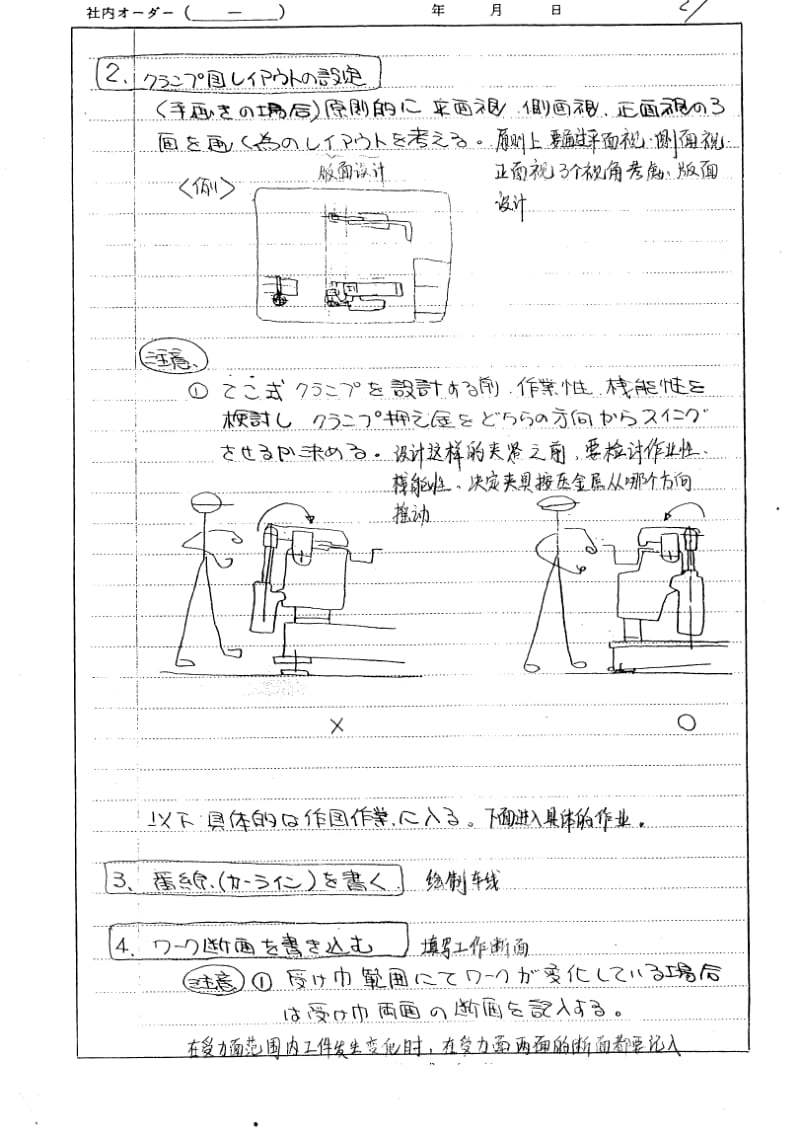 社内オーダー（ － ） 年 月 日
2. クランプ図レイアウトの設定
(手描きの場合)原則的に 平面視、側面視、正面視の3
面を画く為のレイアウトを考える。原则上 要通过平面视、侧面视、
正面视3个视角考虑、版面
设计
版面设计
〈例〉
注意、
① てこ式クランプを設計する前、作業性、機能性を
検討し クランプ押え金をどちらの方向からスイング
させるか決める。设计这样的夹紧之前，要检讨作业性、
機能性、决定夹具按压金属从哪个方向
推动
× ○
以下 具体的な作図作業に入る。下面进入具体的作业。
3. 番線、(カーライン)を書く 绘制车线
4. ワーク断面を書き込む 填写工作断面
注意 ① 受け巾範囲にてワークが変化している場合
は受け巾両面の断面を記入する。
在受力面范围内工件发生变化时，在受力面两面的断面都要记入